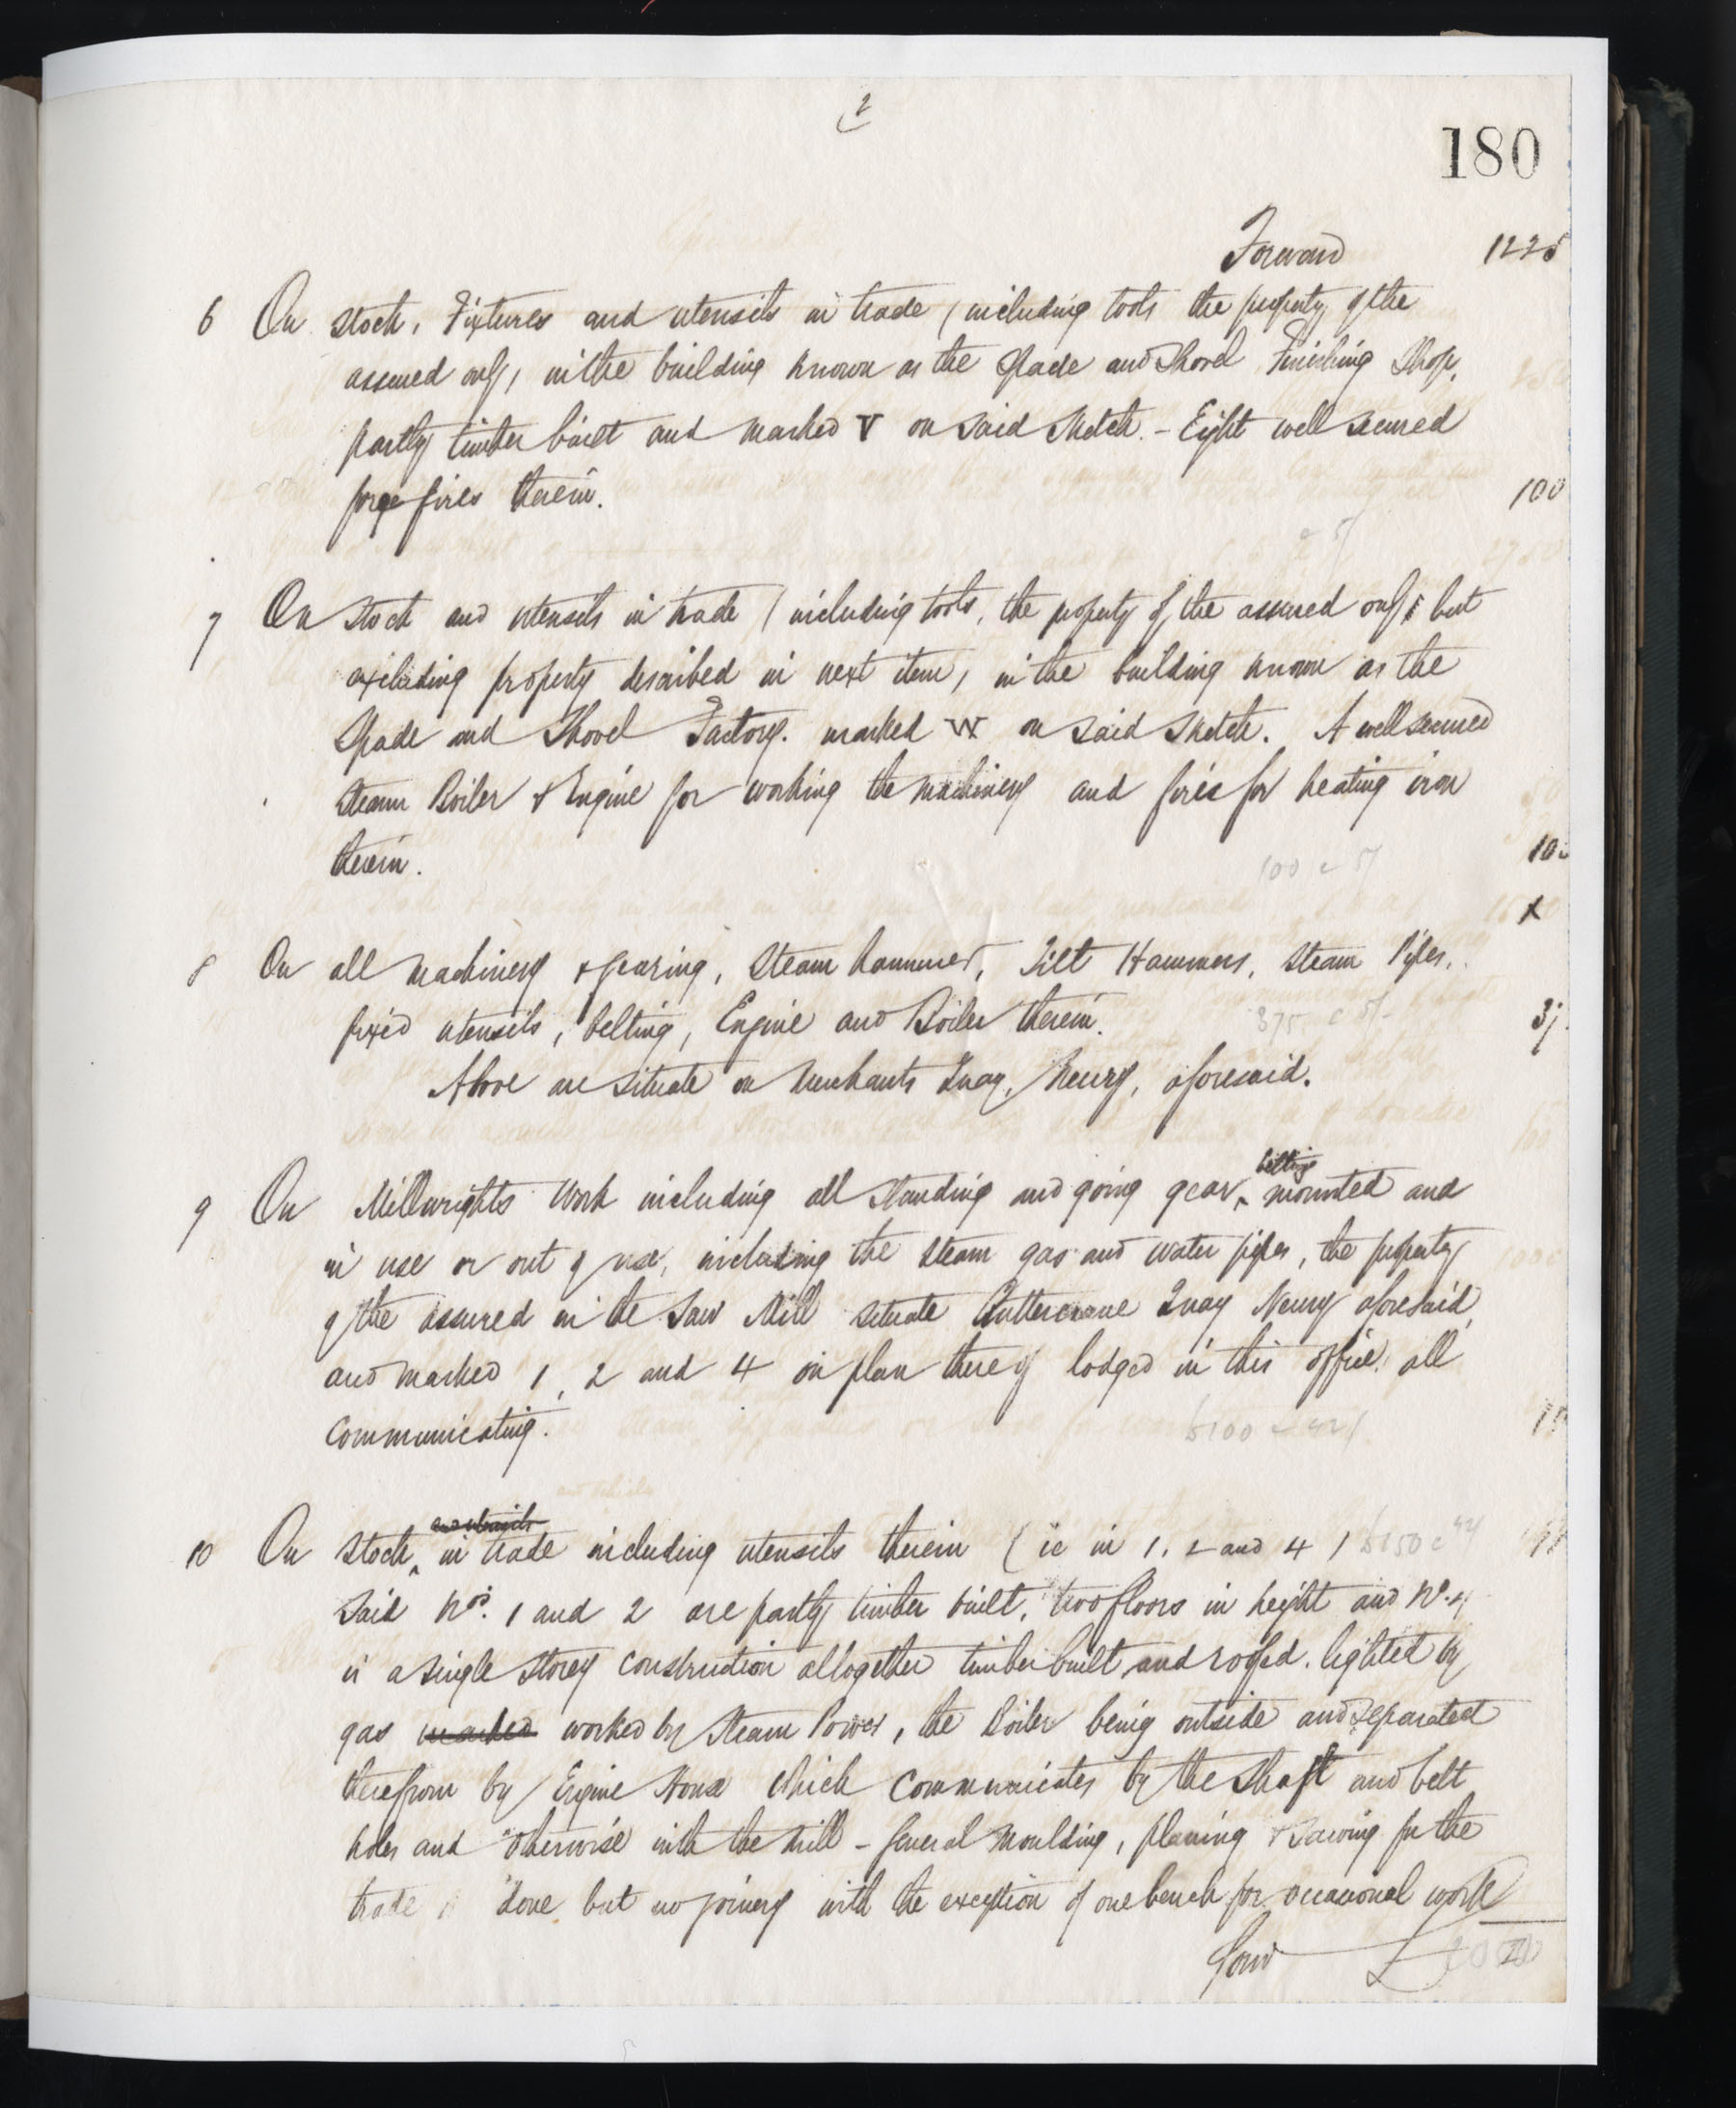 2
180
Forward 1225
6 On stock, Fixtures and utensils in trade (including tools the property of the
assured only) in the building known as the Spade and Shovel Finishing Shop,
partly timber built and marked V on said sketch. - Eight well secured
forge fires therein. 100
7 On stock and utensils in trade (including tools, the property of the assured only but
excluding property described in next item) in the building known as the
Spade and Shovel Factory. marked W on said sketch. A well secured
Steam Boiler & Engine for working the machinery and fires for heating iron
therein. 100 c 5/ 10
x
8 On all machinery & gearing, Steam hammer, Tilt Hammers, Steam Pipes,
fixed utensils, belting, Engine and Boiler therein. 375 c 5/- 37
Above are situate on Merchants Quay, Newry, aforesaid.
belting
9 On Millwrights Work including all standing and going gear, mounted and
in use or out of use, including the steam gas and water pipes, the property
of the assured in the Saw Mill situate Buttercrane Quay Newry aforesaid,
and marked 1, 2 and 4 on plan thereof lodged in this office. all
communicating. £100 c 42/
and utensils
10 On stock in trade including utensils therein (ie in 1. 2 and 4) £150 c 42/
Said Nos. 1 and 2 are partly timber built, two floors in height and No. 4
is a single storey construction altogether timber built and roofed. lighted by
gas marked worked by Steam Power, the Boiler being outside and separated
therefrom by Engine House which communicates by the shaft and belt
holes and otherwise with the mill - General Moulding, planing & sawing for the
trade is done but no joinery with the exception of one bench for occasional work
Forwd £